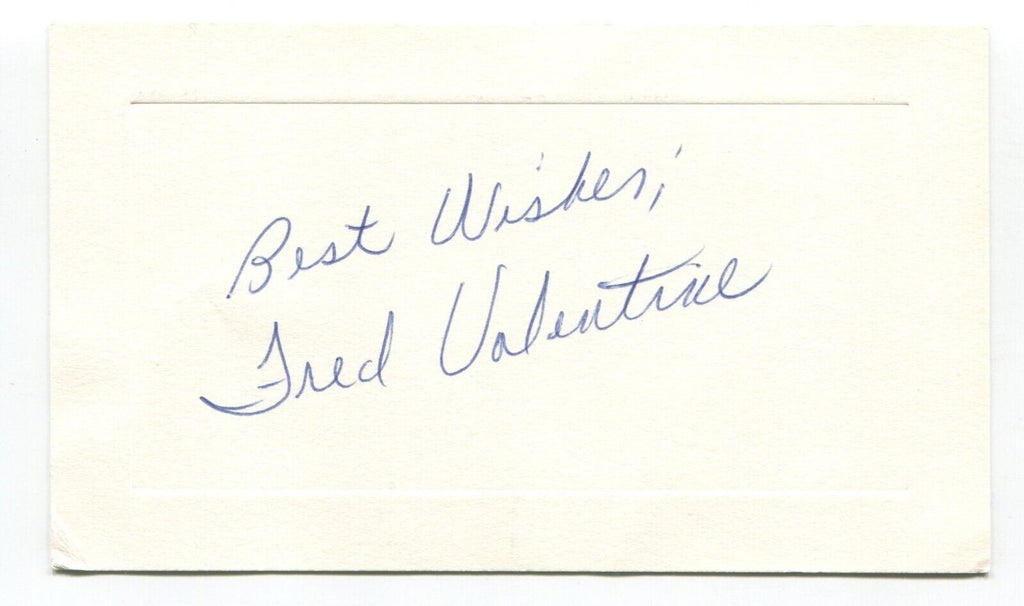 Best Wishes,
Fred Valentine